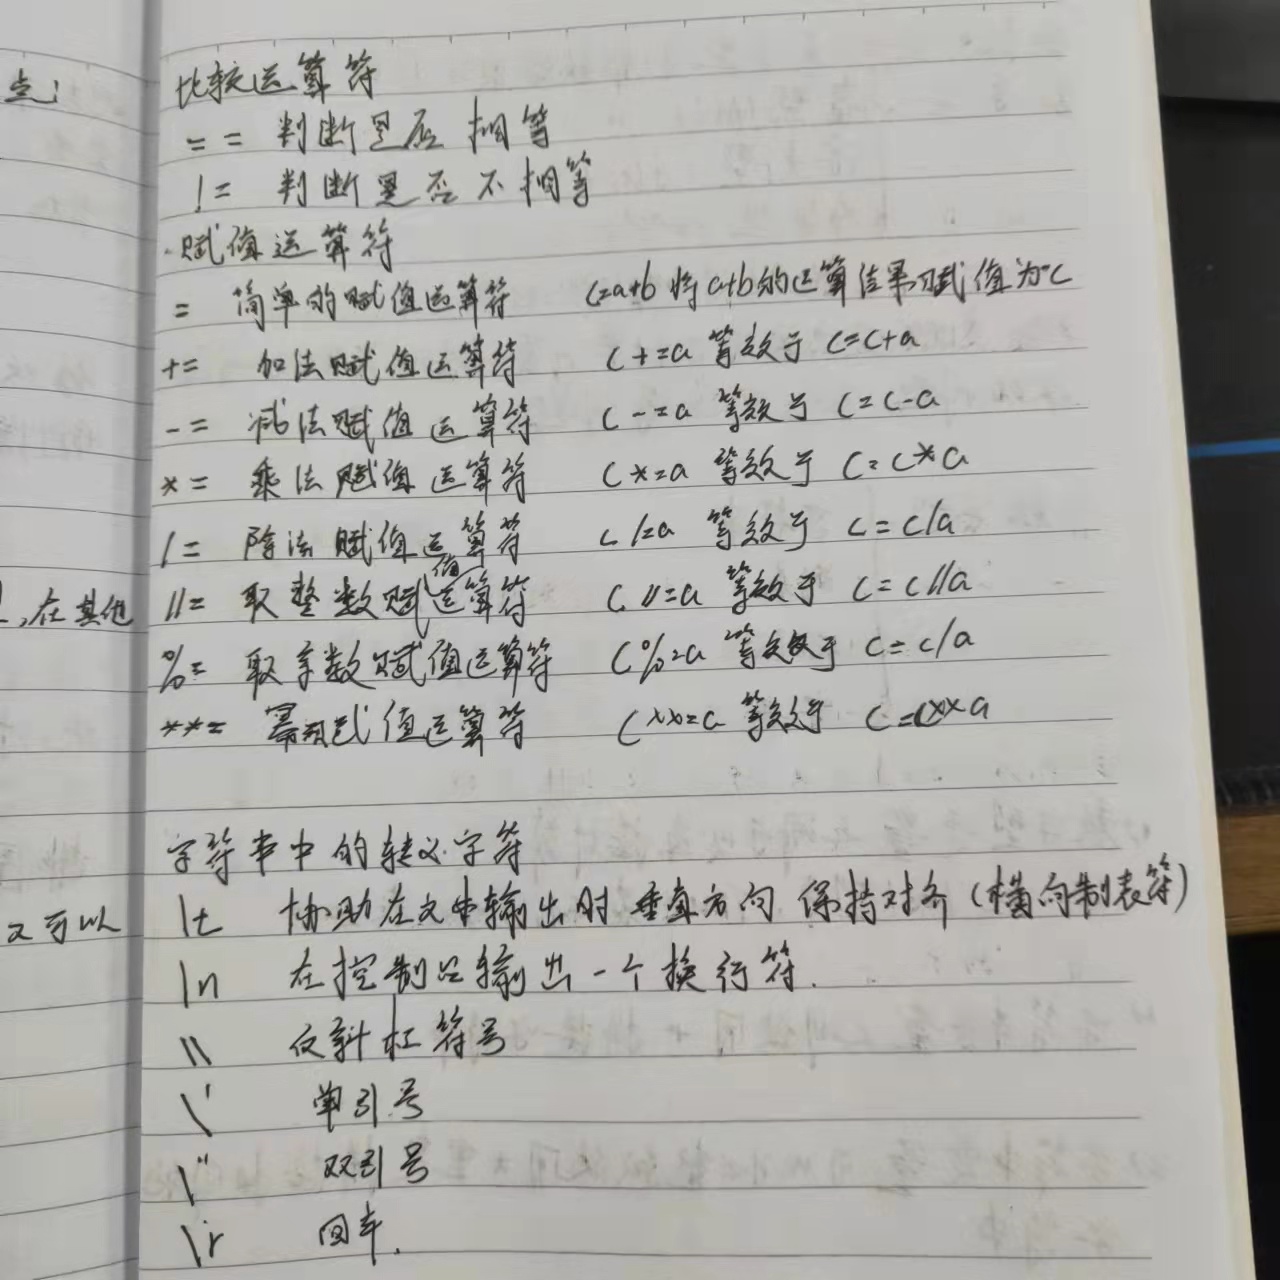 点:
比较运算符
== 判断是否相等
!= 判断是否不相等
赋值运算符
= 简单的赋值运算符 c=a+b 将a+b的运算结果赋值为c
+= 加法赋值运算符 c+=a 等效于 c=c+a
-= 减法赋值运算符 c-=a 等效于 c=c-a
*= 乘法赋值运算符 c*=a 等效于 c=c*a
/= 除法赋值运算符 c/=a 等效于 c=c/a
,在其他
//= 取整数赋值运算符 c//=a 等效于 c=c//a
%= 取余数赋值运算符 c%=a 等效于 c=c/a
**= 幂赋值运算符 c**=a 等效于 c=c**a
字符串中的转义字符
又可以
\t 协助在文中输出时 垂直方向 保持对齐(横向制表符)
\n 在控制台输出一个换行符.
\\ 反斜杠符号
\' 单引号
\" 双引号
\r 回车.